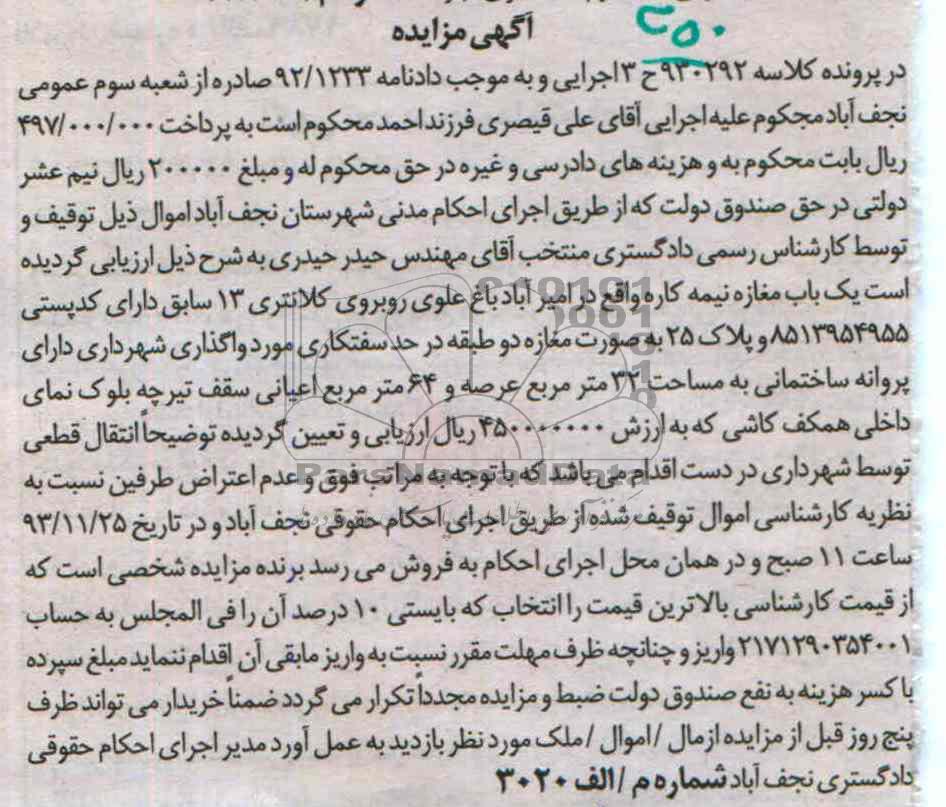 آگهی مزایده
۲۵۰
در پرونده کلاسه ۹۳۰۲۹۲ح ۳ اجرایی و به موجب دادنامه ۹۲/۱۲۳۳ صادره از شعبه سوم عمومی
نجف آباد مجکوم علیه اجرایی آقای علی قیصری فرزند احمد محکوم است به پرداخت ۴۹۷/۰۰۰/۰۰۰
ریال بابت محکوم به و هزینه های دادرسی و غیره در حق محکوم له و مبلغ ۲۰۰۰۰۰ ریال نیم عشر
دولتی در حق صندوق دولت که از طریق اجرای احکام مدنی شهرستان نجف آباد اموال ذیل توقیف و
توسط کارشناس رسمی دادگستری منتخب آقای مهندس حیدر حیدری به شرح ذیل ارزیابی گردیده
است یک باب مغازه نیمه کاره واقع در امیر آباد باغ علوی روبروی کلانتری ۱۳ سابق دارای کدپستی
۸۵۱۳۹۵۴۹۵۵ و پلاک ۲۵ به صورت مغازه دو طبقه در حد سفتکاری مورد واگذاری شهرداری دارای
پروانه ساختمانی به مساحت ۳۲ متر مربع عرصه و ۶۴ متر مربع اعیانی سقف تیرچه بلوک نمای
داخلی همکف کاشی که به ارزش ۴۵۰۰۰۰۰۰۰ ریال ارزیابی و تعیین گردیده توضیحاً انتقال قطعی
توسط شهرداری در دست اقدام می باشد که با توجه به مراتب فوق و عدم اعتراض طرفین نسبت به
نظریه کارشناسی اموال توقیف شده از طریق اجرای احکام حقوقی نجف آباد و در تاریخ ۹۳/۱۱/۲۵
ساعت ۱۱ صبح و در همان محل اجرای احکام به فروش می رسد برنده مزایده شخصی است که
از قیمت کارشناسی بالاترین قیمت را انتخاب که بایستی ۱۰ درصد آن را فی المجلس به حساب
۲۱۷۱۲۹۰۳۵۴۰۰۱ واریز و چنانچه ظرف مهلت مقرر نسبت به واریز مابقی آن اقدام ننماید مبلغ سپرده
با کسر هزینه به نفع صندوق دولت ضبط و مزایده مجدداً تکرار می گردد ضمناً خریدار می تواند ظرف
پنج روز قبل از مزایده از مال /اموال /ملک مورد نظر بازدید به عمل آورد مدیر اجرای احکام حقوقی
دادگستری نجف آباد شماره م /الف ۳۰۲۰
ParsNamadData